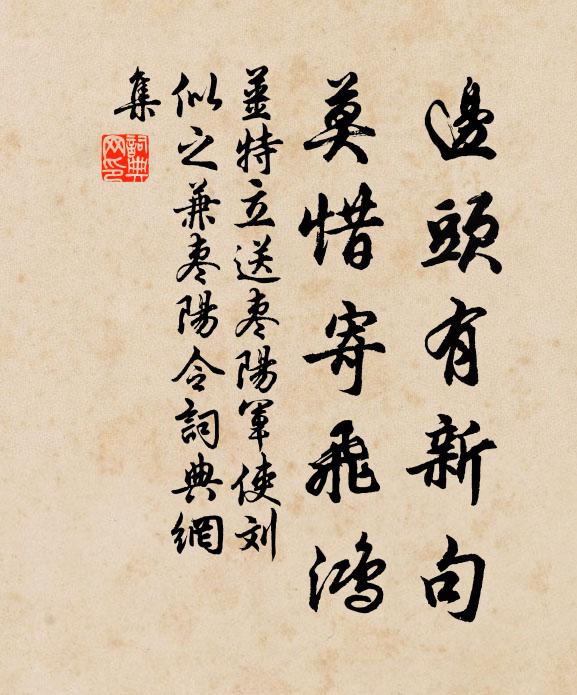 邊頭有新句
莫惜寄飛鴻
薑特立送枣陽軍使刘
似之兼枣陽令詞典網
集
詞典
网印